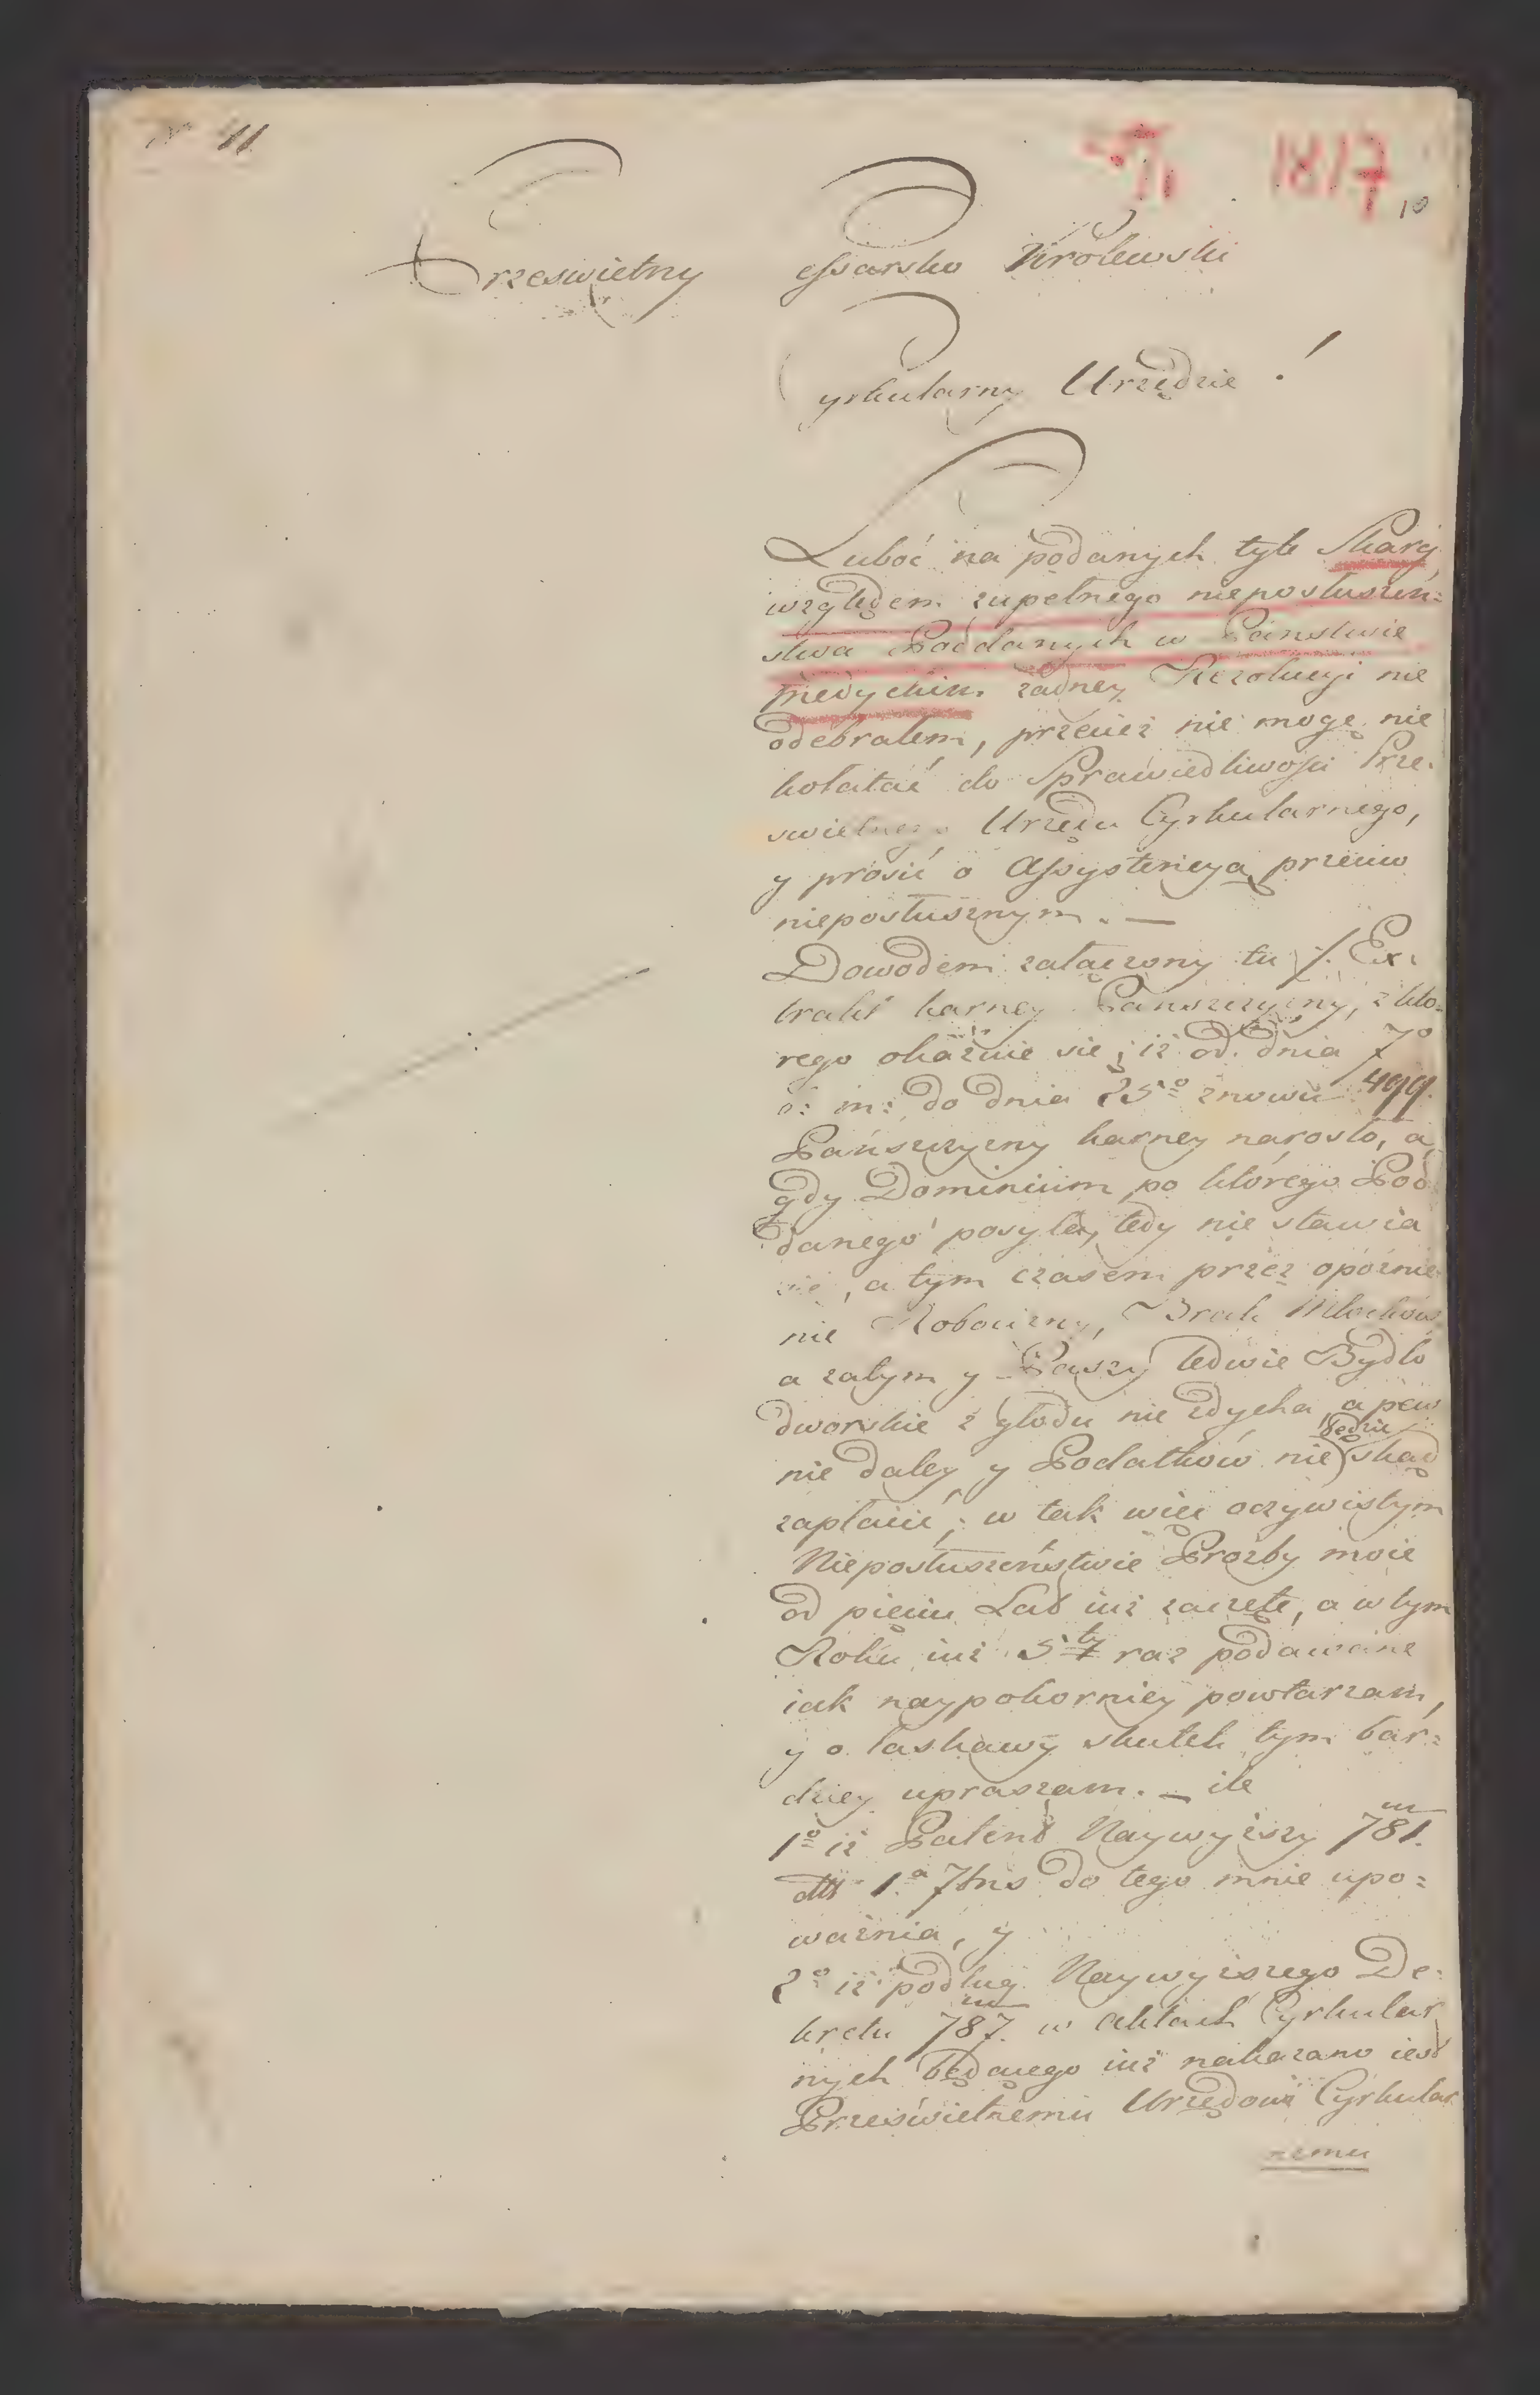 11
1817
10
Przeswietny Cessarsko Krolewski
Cyrkularny Urzędzie !
Luboć na podanych tyle Skarg
względem zupełnego nieposłuszeń=
stwa Poddanych w Panstwie
Medyckim żadney Rezolucyi nie
odebrałem, przecież nie mogę nie
kołatać do Sprawiedliwości Prze=
swietnego Urzędu Cyrkularnego,
y prosić o Assystencyą przeciw
nieposłusznym. —
Dowodem załączony tu /. Ex=
trakt karney Panszczyzny, z któ=
rego okaźuie się, iż od dnia 7º
c: m: do dnia 25º znowu 499.
Pańszczyzny karney narosło, a
gdy Dominium po którego Pod
danego posyła, tedy nie stawia
się, a tym czasem przez opoźnie
nie Robocizny, Brak Młocków
a zatym y Paszy ledwie Bydło
dworskie z głodu nie zdycha, a pew
nie daley y Podatków nie będzie skąd
zapłacić; w tak więc oczywistym
Nieposłuszeństwie Proźby moie
od pięciu Lat iuż zaczęte, a w tym
Roku iuż 5ty raz podawane
iak naypokorniey powtarzam,
y o łaskawy skutek tym bar=
dziey upraszam. — ile
1º iż Patent Naywyższy 781.
dtt 1.a 7bris do tego mnie upo=
ważnia, y
2º iż podług Naywyższego De=
kretu 787. w Aktach Cyrkular
nych będącego iuż nakazano iest
Prześwietnemu Urzędowi Cyrkular
nemu